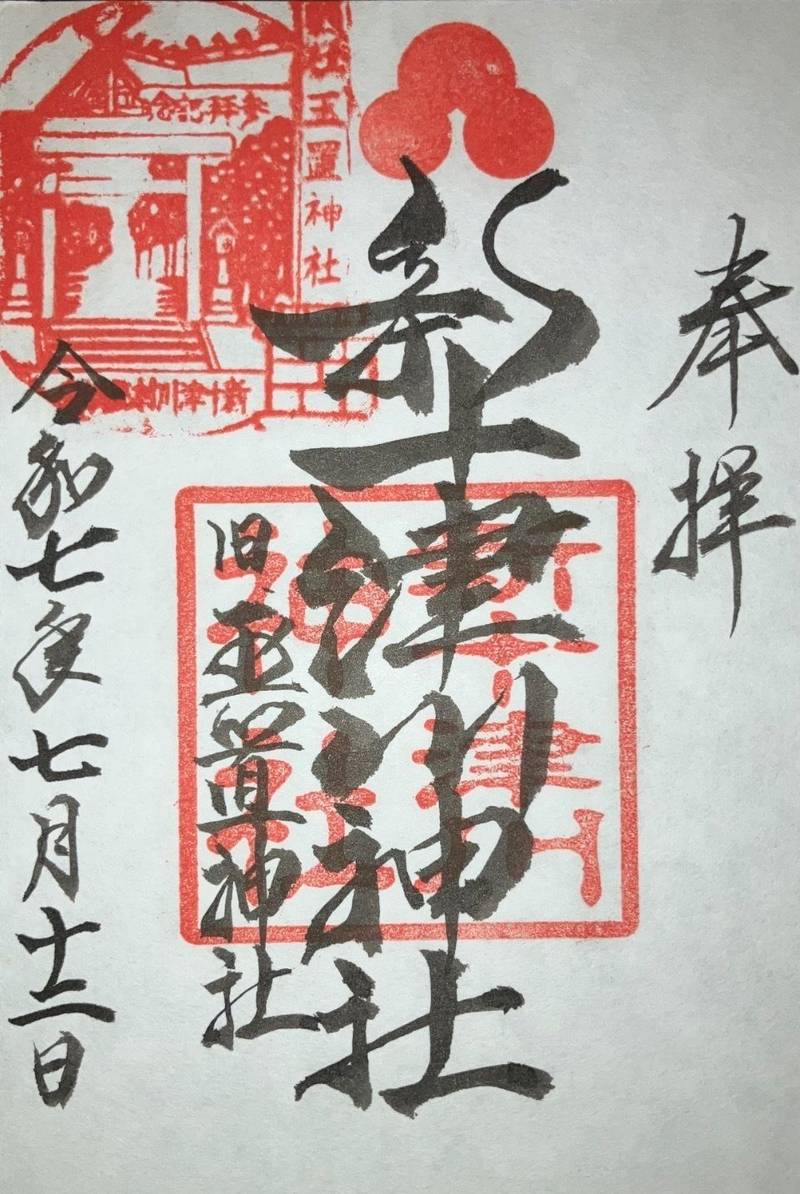 奉拝
新十津川神社
旧玉置神社
令和七年七月十二日
社玉置神社
参拝記念
新十津川